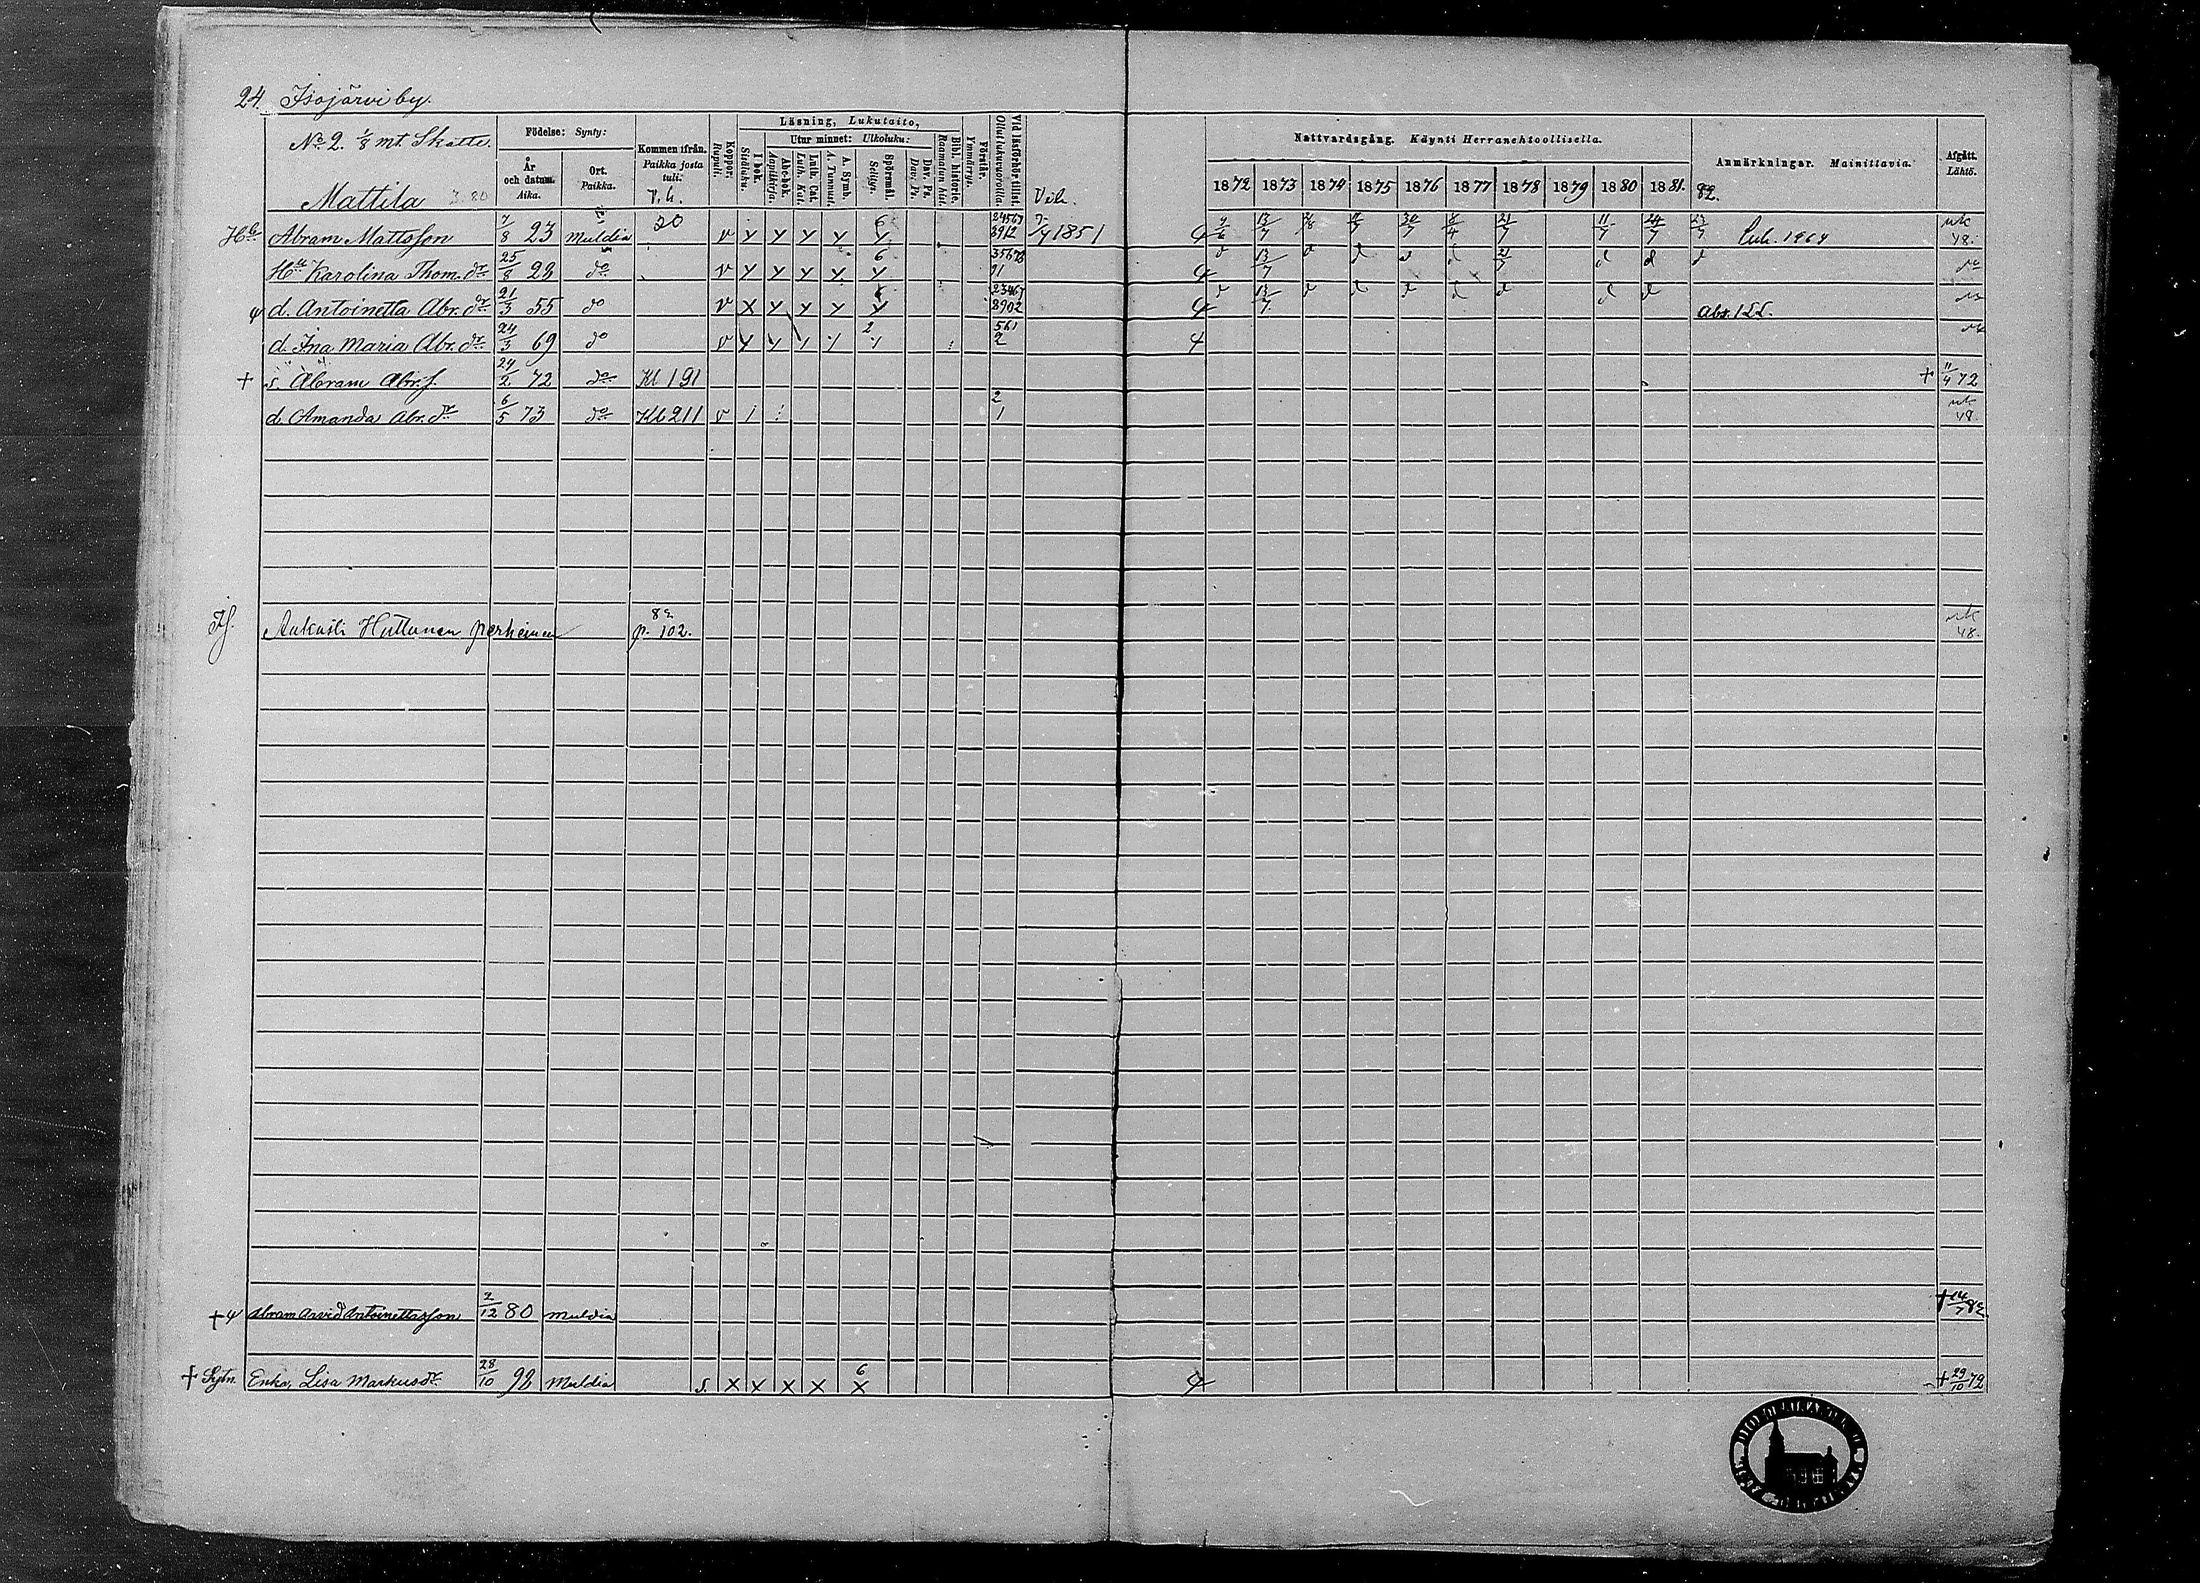 24. Isojärvi by.
No 2. 1/8 mt. Skatte.
Mattila
Födelse: Synty:
År och datum. Aika.
Ort. Paikka.
Kommen ifrån. Paikka josta tuli.
Koppor. Rupuli.
Läsning, Lukutaito,
I bok. Sisäluku.
Utur minnet: Ulkoluku:
Abc-bok. Aapiskirja.
Luth. Cat. Luth. Kat.
A. Symb. A. Tunnust.
Spörsmål. Selitys.
Dav. Ps. Dav. Ps.
Bibl. historie. Raamatun hist.
Förstår. Ymmärrys.
Vid läsförhör tillst. Ollut lukuvuorolla.
Nattvardsgång. Käynti Herranehtoollisella.
1872 1873 1874 1875 1876 1877 1878 1879 1880 1881. 82.
Anmärkningar. Mainittavia.
Afgått. Lähtö.
Abram Mattsson 7/8 23 Muldia 20 v 6 24567 8912 1851 13/7 21/7 11/7 24/7 23/7 48.
Karolina Thom. dr 25/8 23 do v 6 13/7 21/7
d. Antoinetta Abr. dr 21/3 55 do v 23467 8902 13/7 Abs. 155.
d. Ina Maria Abr. dr 24/3 69 do v 2 561 2
+ s. Abram Abr. s. 24/2 72 do Kl 191 + 11/4 72
d. Amanda Abr. dr 6/5 73 do Kl 211 v 2 1 48.
Aukusti Huttunen perheineen 82 p. 102. 48.
+ Abram Arvid Antoinettasson 7/12 80 Muldia + 14/7 82
+ Sytn. Enka, Lisa Markusdr. 28/10 92 Muldia s. x x x x 6 x + 29/10 72